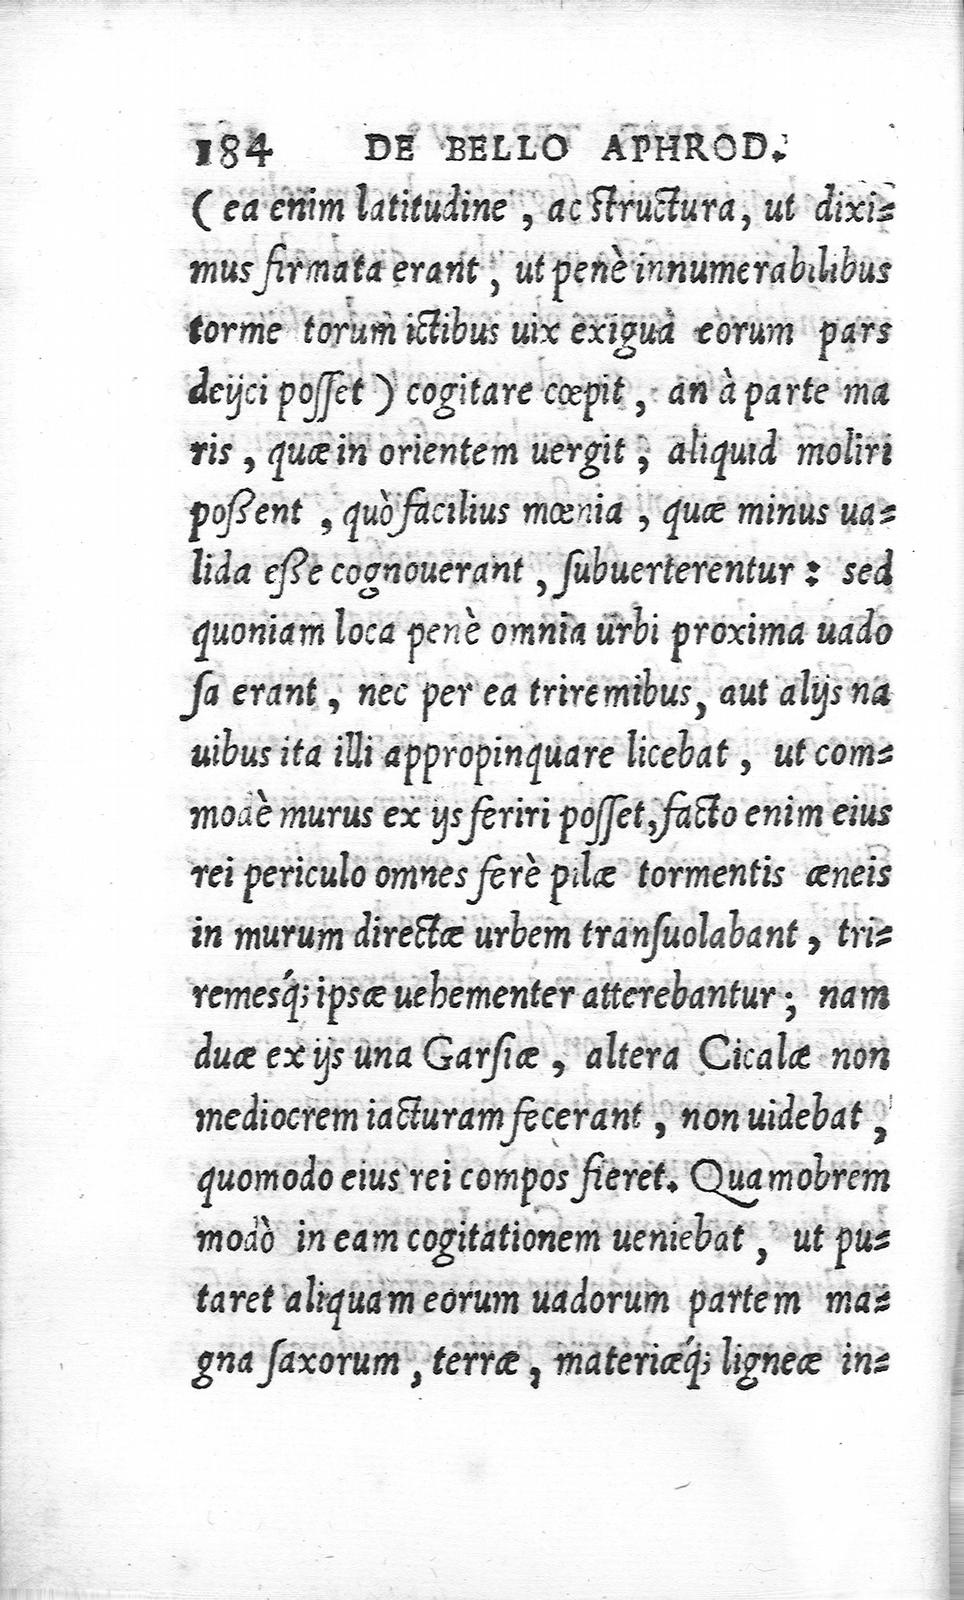 184 DE BELLO APHROD.
( ea enim latitudine , ac structura, ut dixi=
mus firmata erant , ut penè innumerabilibus
torme torum ictibus uix exigua eorum pars
deijci posset ) cogitare cœpit , an à parte ma
ris , quæ in orientem uergit , aliquid moliri
poßent , quò facilius mœnia , quæ minus ua=
lida eße cognouerant , subuerterentur : sed
quoniam loca penè omnia urbi proxima uado
sa erant , nec per ea triremibus, aut alijs na
uibus ita illi appropinquare licebat , ut com=
modè murus ex ijs feriri posset, facto enim eius
rei periculo omnes ferè pilæ tormentis æneis
in murum directæ urbem transuolabant , tri=
remesq́; ipsæ uehementer atterebantur ; nam
duæ ex ijs una Garsiæ , altera Cicalæ non
mediocrem iacturam fecerant , non uidebat ,
quomodo eius rei compos fieret. Quamobrem
modò in eam cogitationem ueniebat , ut pu=
taret aliquam eorum uadorum partem ma=
gna saxorum , terræ , materiæq́; ligneæ in=